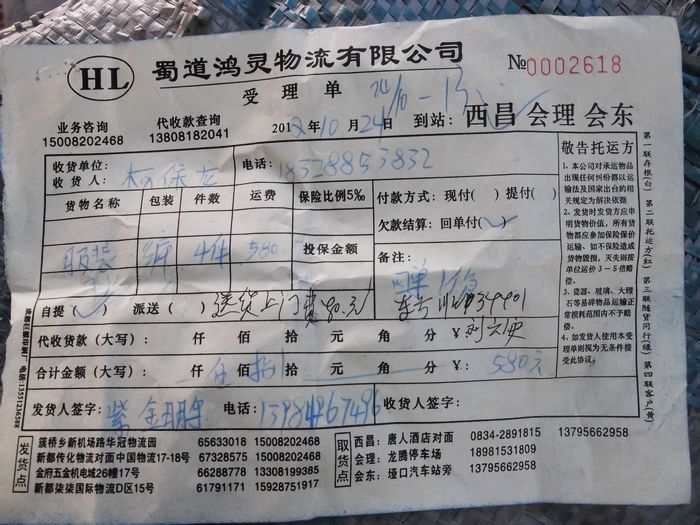 HL 蜀道鸿灵物流有限公司 №0002618
受理单
业务咨询 代收款查询
15008202468 13808182041 2012年10月24日 到站：西昌 会理 会东
收货单位：
收货人： 电话：18328853832
货物名称 包装 件数 运费 保险比例5‰ 付款方式：现付( ) 提付( )
欠款结算：回单付(✓)
服装 4件 580 投保金额 备注：
自提( ) 派送( ) 送货上门费80元
代收货款（大写）： 仟 佰 拾 元 角 分 ￥：
合计金额（大写）： 仟 佰 拾 元 角 分 ￥： 580元
发货人签字： 电话：13984967496 收货人签字：
发货点
簇桥乡新机场路华冠物流园 65633018 15008202468
新都传化物流对面中国物流17-18号 67328575 15008202468
金府五金机电城26幢17号 66288778 13308199385
新都柒柒国际物流D区15号 61791171 15928751917
取货点
西昌：唐人酒店对面 0834-2891815 13795662958
会理：龙腾停车场 18981531809
会东：垭口汽车站旁 13795662958
敬告托运方
1、本公司对承运物品
出现任何纠纷都以运
输法及国家出台的相
关规定为解决依据
2、发货时发货方应申
明货物价值，所有货
物都应参加保险保价
运输、如不保险造成
货物毁损，灭失则按
单位运价3－5倍赔
偿。
3、瓷器、玻璃、大理
石等易碎物品运输正
常损耗范围内不予赔
偿。
4、如发货人使用本受
理单则视为无条件接
受此协议。
第一联存根(白) 第二联托运方(红) 第三联随货同行(绿) 第四联客户(黄)